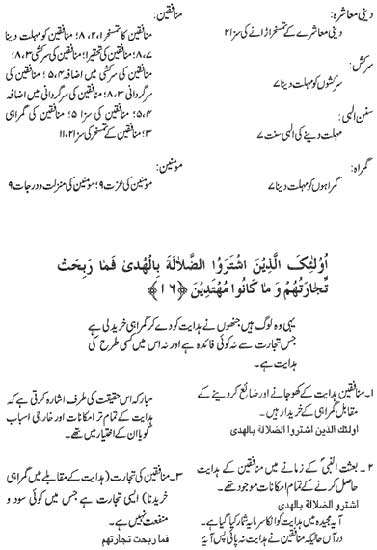 دینی معاشرہ:
دینی معاشرے کے تمسخر اڑانے کی سزا ۲
سرکش:
سرکشوں کو مہلت دینا ۷
سنن الہی:
مہلت دینے کی الہی سنت ۷
گمراہ:
گمراہوں کو مہلت دینا ۷
منافقین:
منافقین کا تمسخر ۱، ۲، ۸؛ منافقین کو مہلت دینا
۷، ۸؛ منافقین کی تحقیر ۱؛ منافقین کی سرکشی ۳، ۸؛
منافقین کی سرکشی میں اضافہ ۴، ۵؛ منافقین کی
سرگردانی ۳، ۸؛ منافقین کی سرگردانی میں اضافہ
۴، ۵؛ منافقین کی سزا ۵؛ منافقین کی گمراہی
۳؛ منافقین کے تمسخر کی سزا ۲، ۱۱
مؤمنین:
مؤمنین کی عزت ۹؛ مؤمنین کی منزلت و درجات ۹
اُولٰئِکَ الَّذِیْنَ اشْتَرَوُا الضَّلاَلَةَ بِالْهُدیٰ فَمَا رَبِحَتْ
تِّجَارَتُهُمْ وَ مَا کَانُوا مُهْتَدِیْنَ ﴿۱۶﴾
یہی وہ لوگ ہیں جنھوں نے ہدایت کو دے کر گمراہی خرید لی ہے
جس تجارت سے نہ کوئی فائدہ ہے اور نہ اس میں کسی طرح کی
ہدایت ہے۔
۱۔ منافقین ہدایت کے کھو جانے اور ضائع کر دینے کے
مقابل گمراہی کے خریدار ہیں۔
اولئک الذین اشتروا الضلالة بالهدی
۲۔ بعثت النبیؐ کے زمانے میں منافقین کے ہدایت
حاصل کرنے کے تمام امکانات موجود تھے۔
اشتروا الضلالة بالهدی
آیہ مجیدہ میں ہدایت کو انکا سرمایہ شمار کیا گیا ہے
درآں حالیکہ منافقین نے ہدایت نہ پائی پس آیہ
مبارکہ اس حقیقت کی طرف اشارہ کرتی ہے کہ
ہدایت کے تمام تر امکانات اور خارجی اسباب
گویا ان کے اختیار میں تھے۔
۳۔ منافقین کی تجارت (ہدایت کے مقابلے میں گمراہی
خریدنا) ایسی تجارت ہے جس میں کوئی سود و
منفعت نہیں ہے۔
فما ربحت تجارتهم